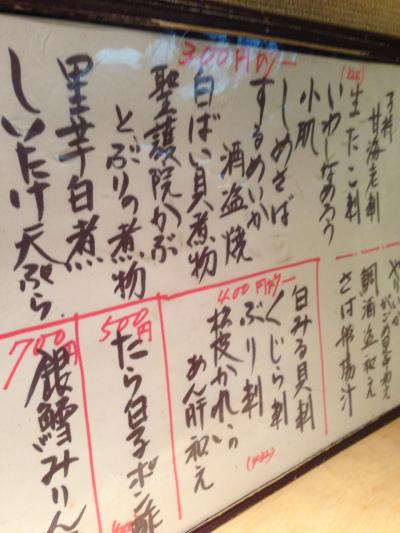 300円カラー
子持甘海老刺
(324)
生たこ刺
いわしなめろう
小肌
しめさば
するめいか酒盗焼
白ばい貝煮物
聖護院かぶとぶりの煮物
里芋白煮
しいたけ天ぷら
鯛酒盗和え
さば船場汁
400円カラー
白みる貝刺
くじら刺
ぶり刺
松皮かれいのあん肝和え
(432)
500円
たら白子ポン酢
700円
銀鱈みりん